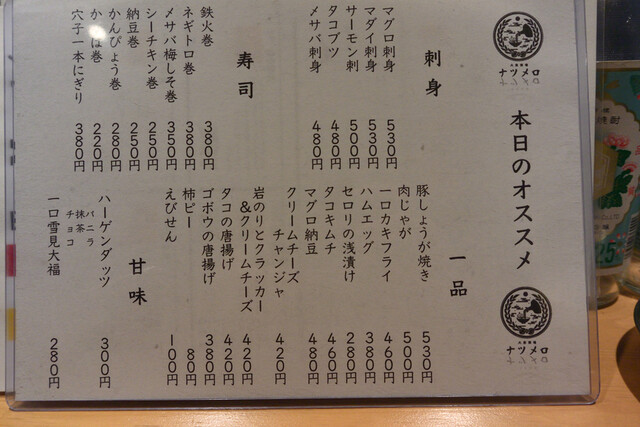 ナツメロ
本日のオススメ
ナツメロ
刺身
マグロ刺身 530円
マダイ刺身 530円
サーモン刺 500円
タコブツ 480円
メサバ刺身 480円
寿司
鉄火巻 380円
ネギトロ巻 380円
メサバ梅しそ巻 350円
シーチキン巻 250円
納豆巻 250円
かんぴょう巻 280円
かっぱ巻 220円
穴子一本にぎり 380円
一品
豚しょうが焼き 530円
肉じゃが 500円
一口カキフライ 460円
ハムエッグ 380円
セロリの浅漬け 280円
タコキムチ 460円
マグロ納豆 480円
クリームチーズ
チャンジャ 420円
岩のりとクラッカー
&クリームチーズ 420円
タコの唐揚げ 420円
ゴボウの唐揚げ 380円
柿ピー 80円
えびせん 100円
甘味
ハーゲンダッツ 300円
バニラ
抹茶
チョコ
一口雪見大福 280円
25%